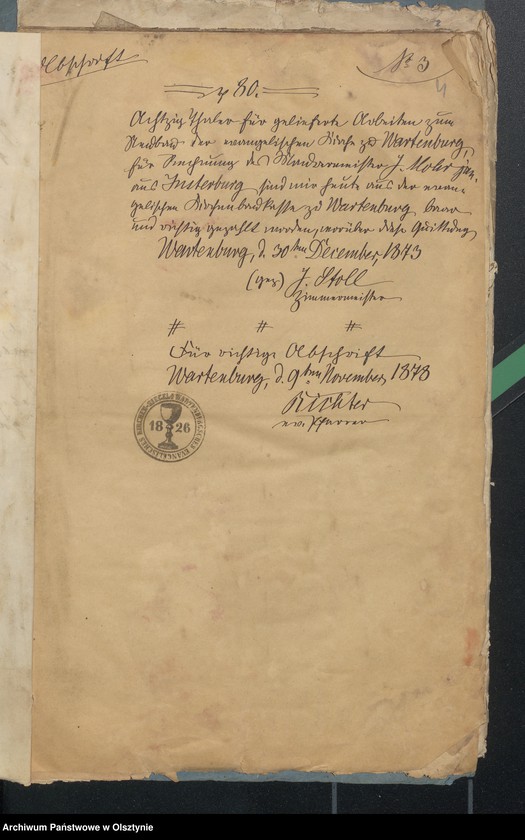 Abschrift
No 3
4
80.
Achtzig Thaler für gelieferte Arbeiten zum
Neubau der evangelischen Kirche zu Wartenburg
für Rechnung des Maurermeister J. Mohr jun.
aus Insterburg sind mir heute aus der evan-
gelischen Kirchenbaukasse zu Wartenburg baar
und richtig gezahlt worden, worüber diese Quittung
Wartenburg, d. 30ten December, 1873
(gez) J. Stoll
Zimmermeister
# # #
Für richtige Abschrift
Wartenburg, d. 9ten November, 1878
Richter
ev. Pfarrer
1826
Archiwum Państwowe w Olsztynie